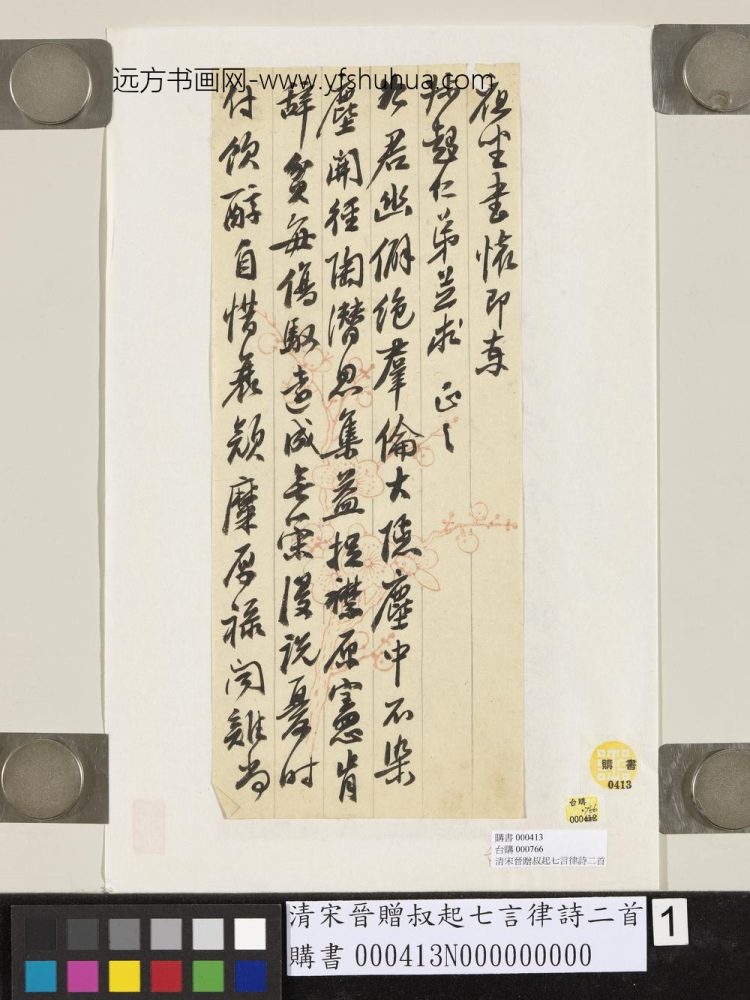 远方书画网-www.yfshuhua.com
夜坐書懷即柬
叔起仁弟並求 正之
如君幽僻絕羣倫大隱塵中不染
塵開徑陶潛思集益捉襟原憲肯
辭貧每傷馭遠成無策漫說憂時
付飲醇自惜衰顏糜厚祿聞雞尚
購書
0413
台購
766
購書 000413
台購 000766
清宋晉贈叔起七言律詩二首
清宋晉贈叔起七言律詩二首
購書 000413N000000000
1